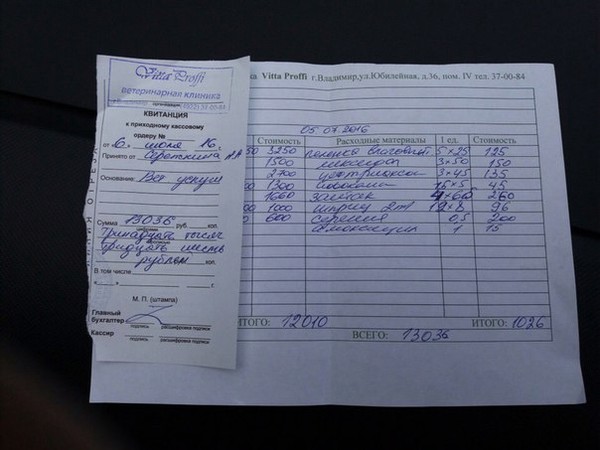 Vitta Proffi
ветеринарная клиника
(4922) 37-00-84
КВИТАНЦИЯ
к приходному кассовому
ордеру №
от «6» июля 16 г.
Принято от
Основание: Вет услуги
Сумма 13036 руб. коп.
цифрами
Тринадцать тысяч
прописью
тридцать шесть
рублей коп.
В том числе
« » г.
М. П. (штампа)
Главный
бухгалтер
подпись расшифровка подписи
Кассир
подпись расшифровка подписи
ЛИНИЯ ОТРЕЗА
ка Vitta Proffi г.Владимир,ул.Юбилейная, д.36, пом. IV тел. 37-00-84
05.07.2016
Стоимость Расходные материалы 1 ед. Стоимость
50 3250 пеленка 5×25 125
1500 3×50 150
2700 3×45 135
1300 15×5 45
1660 4×60 260
1000 шприц 2мл 12×8 96
600 серения 0,5 200
1 15
ИТОГО: 12010 ИТОГО: 1026
ВСЕГО: 13036